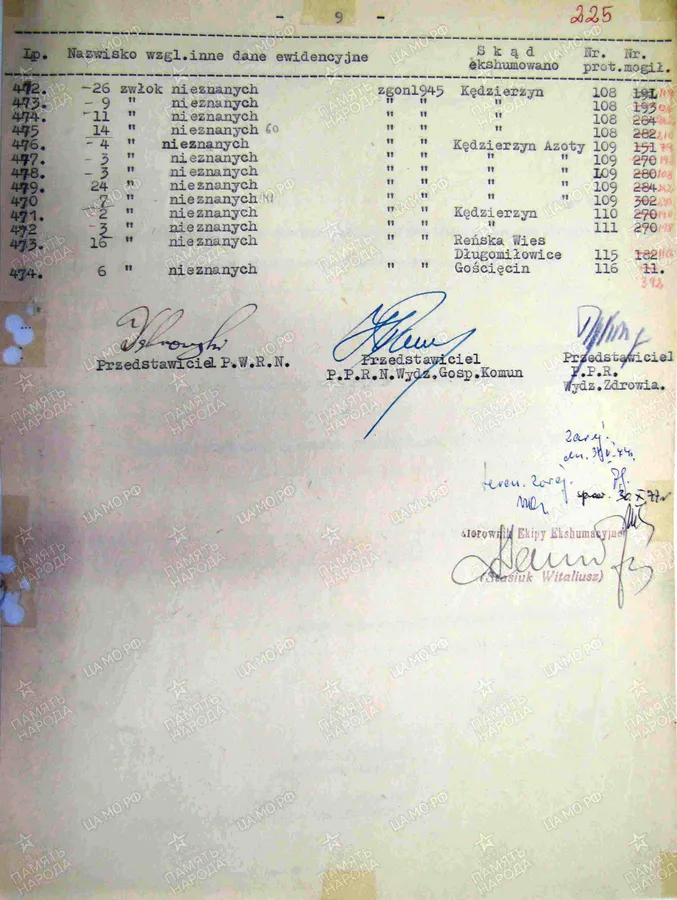 - 9 -
225
Lp. Nazwisko wzgl.inne dane ewidencyjne Skąd ekshumowano Nr. prot. Nr. mogił.
472. -26 zwłok nieznanych zgon1945 Kędzierzyn 108 191
473. - 9 " nieznanych " " " 108 193
474. -11 " nieznanych " " " 108 284
475 14 " nieznanych 60 " " " 108 282
476. - 4 " nieznanych " " Kędzierzyn Azoty 109 151
477. - 3 " nieznanych " " " " 109 270
478. - 3 " nieznanych " " " " 109 280
479. 24 " nieznanych " " " " 109 284
470 7 " nieznanych " " " " 109 302
471. - 2 " nieznanych " " Kędzierzyn 110 270
472 - 3 " nieznanych " " " 111 270
473. 16 " nieznanych " " Reńska Wieś
Długomiłowice 115 182
474. 6 " nieznanych " " Gościęcin 116 11.
392
Przedstawiciel P.W.R.N.
Przedstawiciel
P.P.R.N.Wydz.Gosp.Komun
Przedstawiciel
P.P.R.
Wydz.Zdrowia.
zarej.
teren. zarej.
Kierownik Ekipy Ekshumacyjnej
(Stasiuk Witaliusz)
ПАМЯТЬ НАРОДА
ЦАМО.РФ